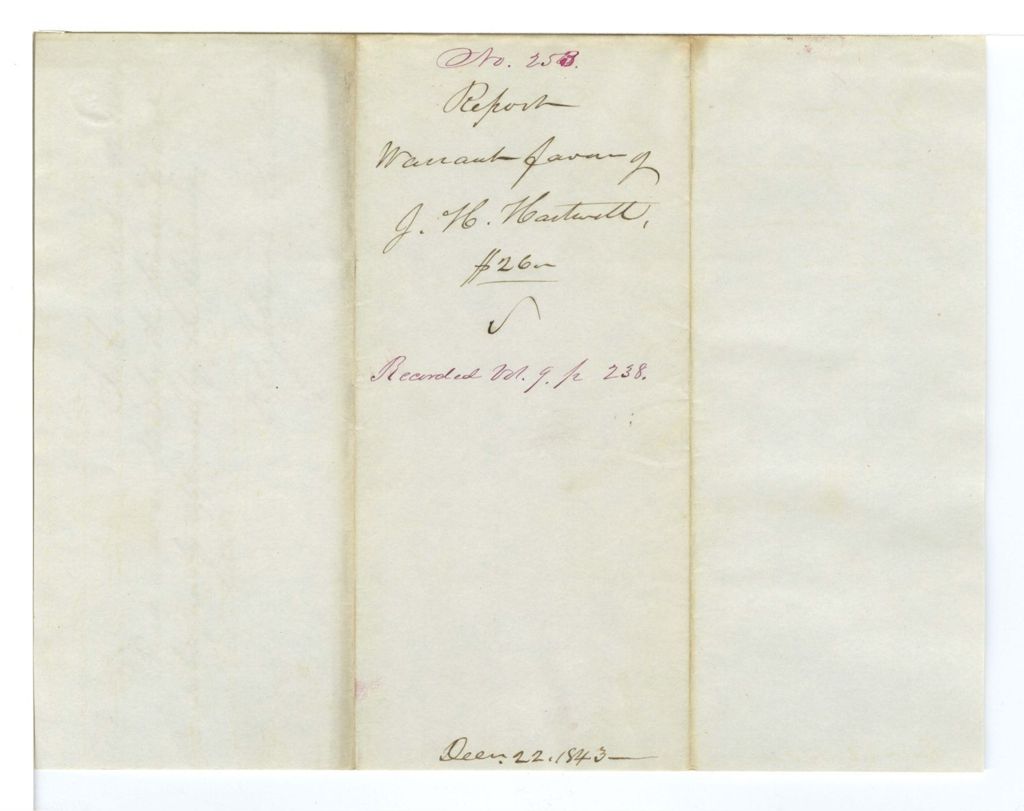 No. 258.
Report
Warrant favor of
J. H. Hartwell,
$26—
Recorded Vol. 9. p 238.
Decr. 22. 1843—